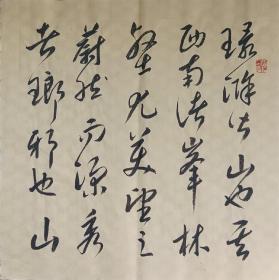 环滁皆山也其
西南诸峰林
壑尤美望之
蔚然而深秀
者瑯邪也山